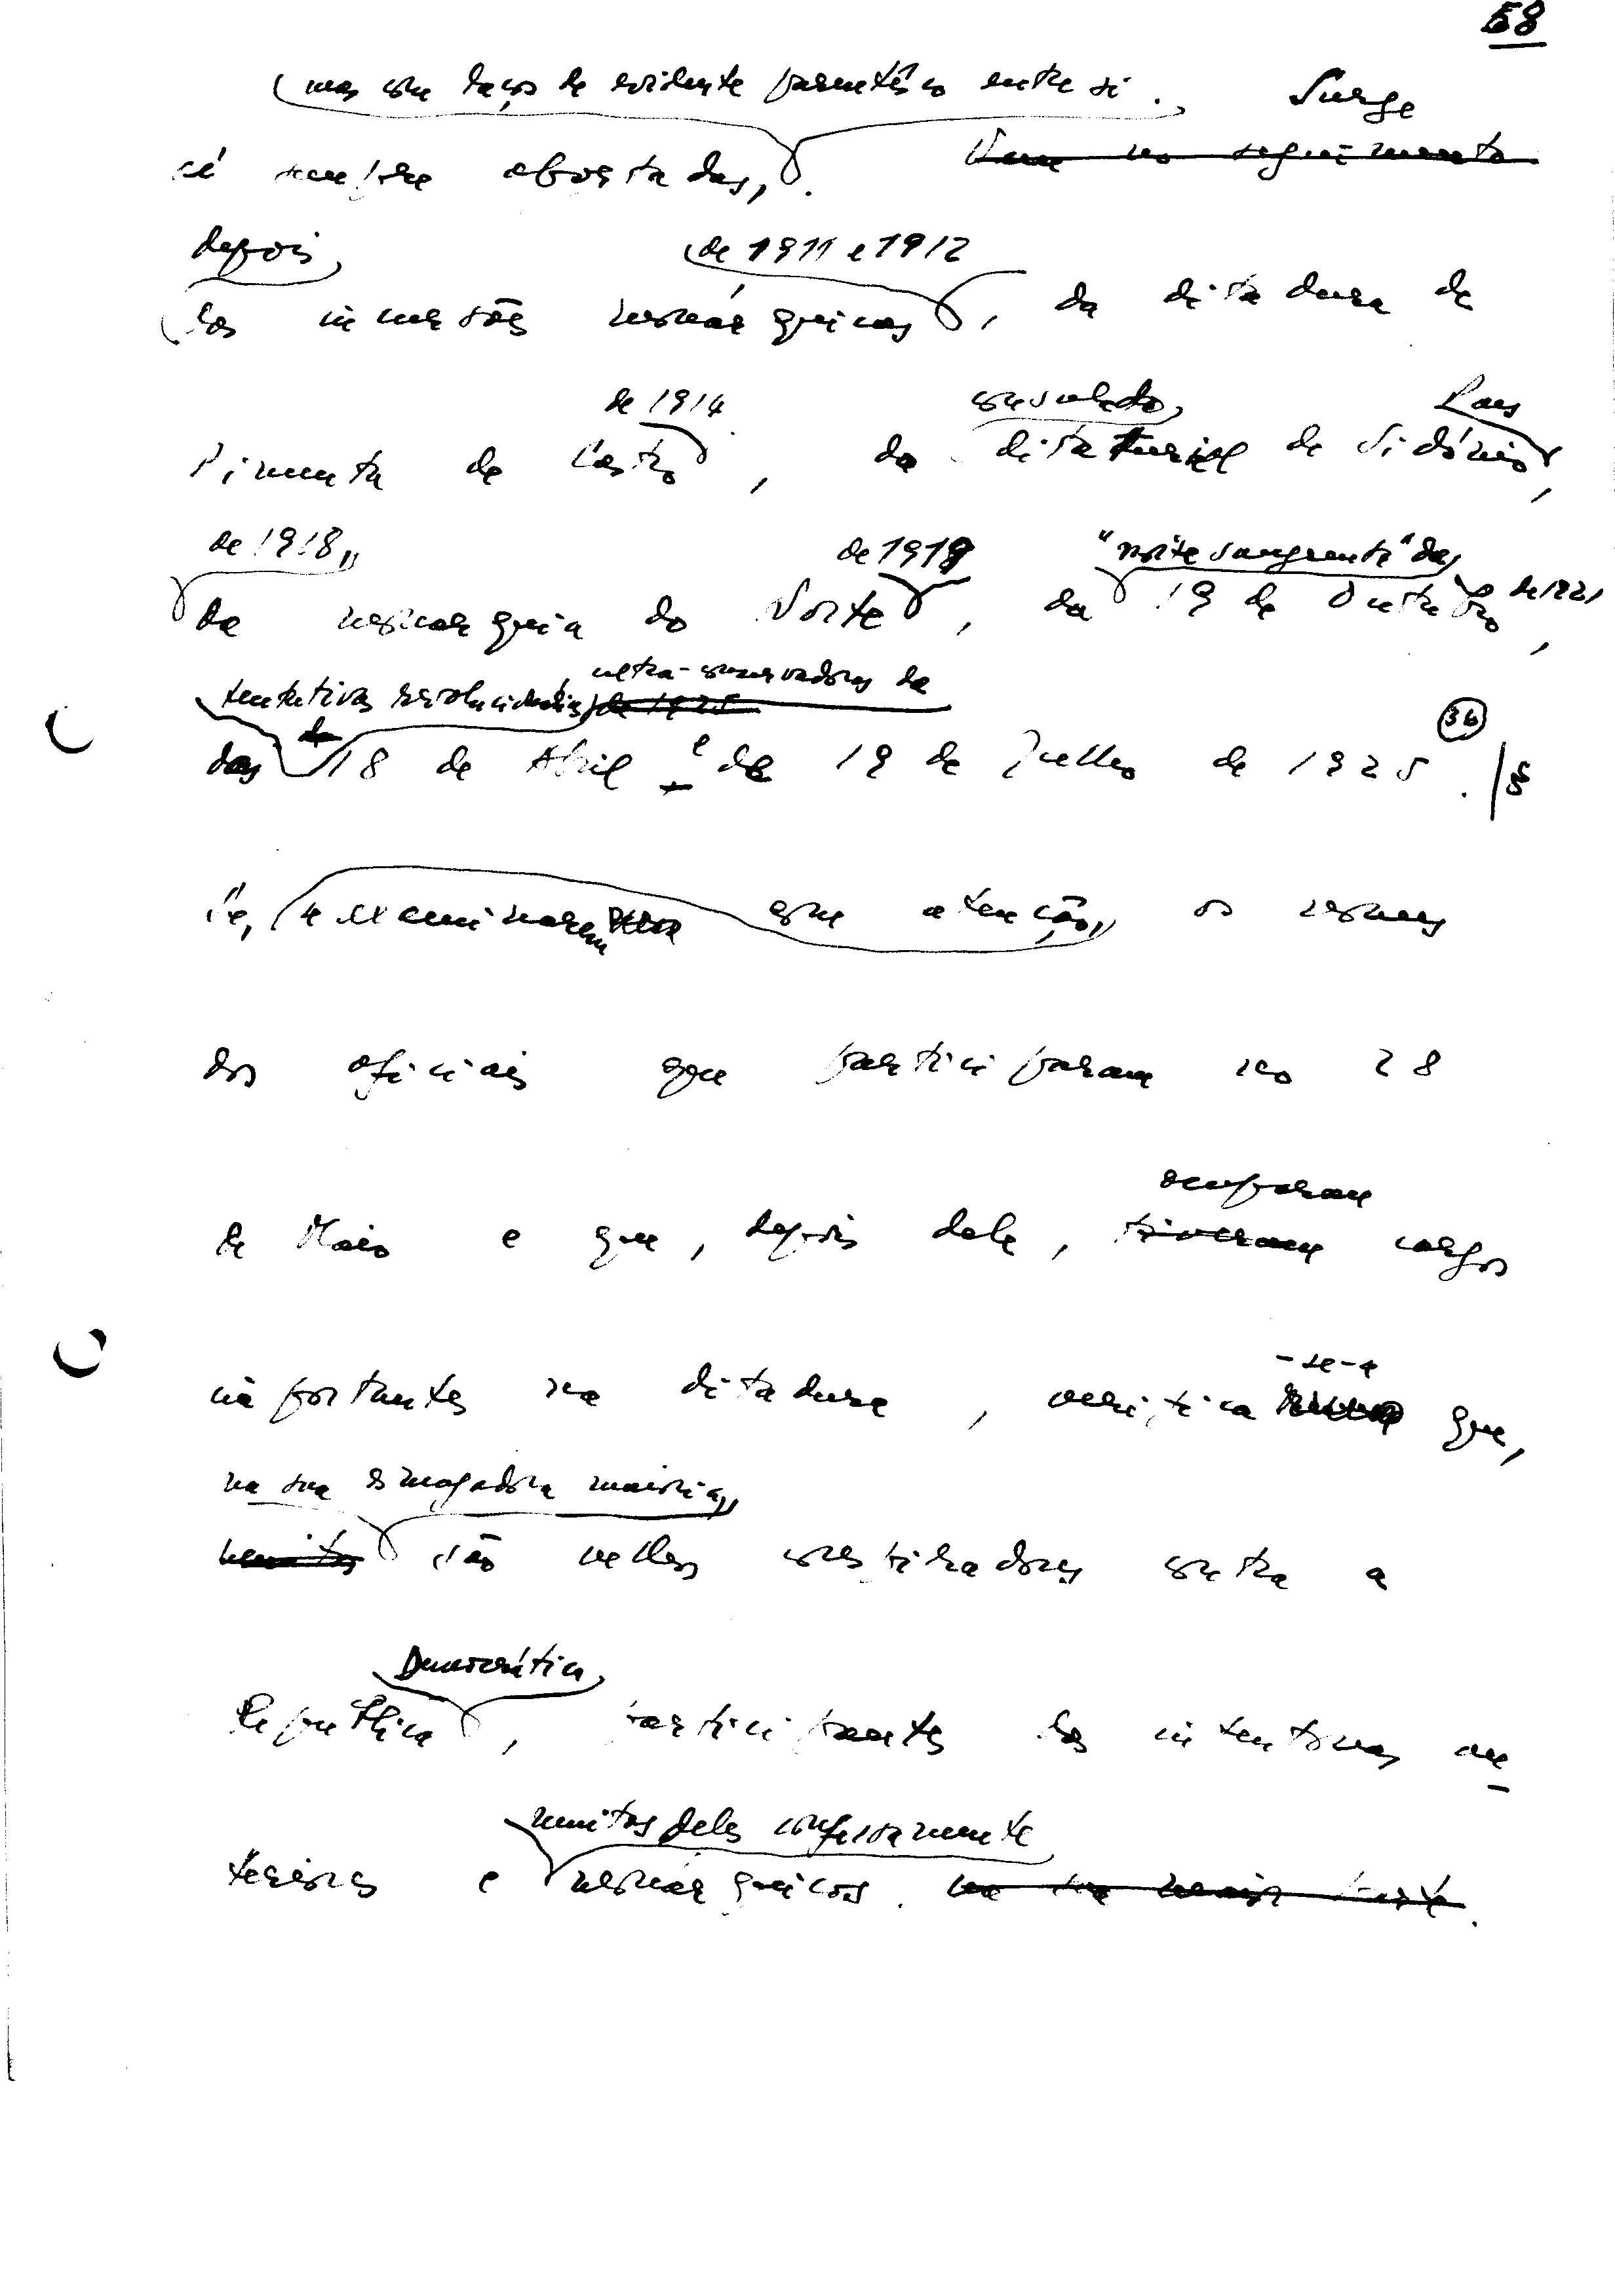 58
mas com laços de evidente parentesco entre si. Surge
sempre abortadas, . Vem no seguimento
depois, de 1911 e 1912
das incursões monárquicas, da ditadura de
de 1914 consulado, Pais
Pimenta de Castro, do ditatorial de Sidónio,
de 1918, de 1919 "noite sangrenta" de
da monarquia do Norte, da 19 de Outubro de 1921,
tentativas ultra-conservadoras de
de 1925
das 18 de Abril e de 19 de Julho de 1925 (36) . /§
Se, se examinarem com atenção, os nomes
dos oficiais que participaram no 28
ocuparam
de Maio e que, depois dele, tiveram cargos
-se-á
importantes na ditadura, verifica que,
na sua esmagadora maioria,
muitos são velhos conspiradores contra a
Democrática,
República, participantes das intentonas an-
muitos deles confessamente
teriores e monárquicos.